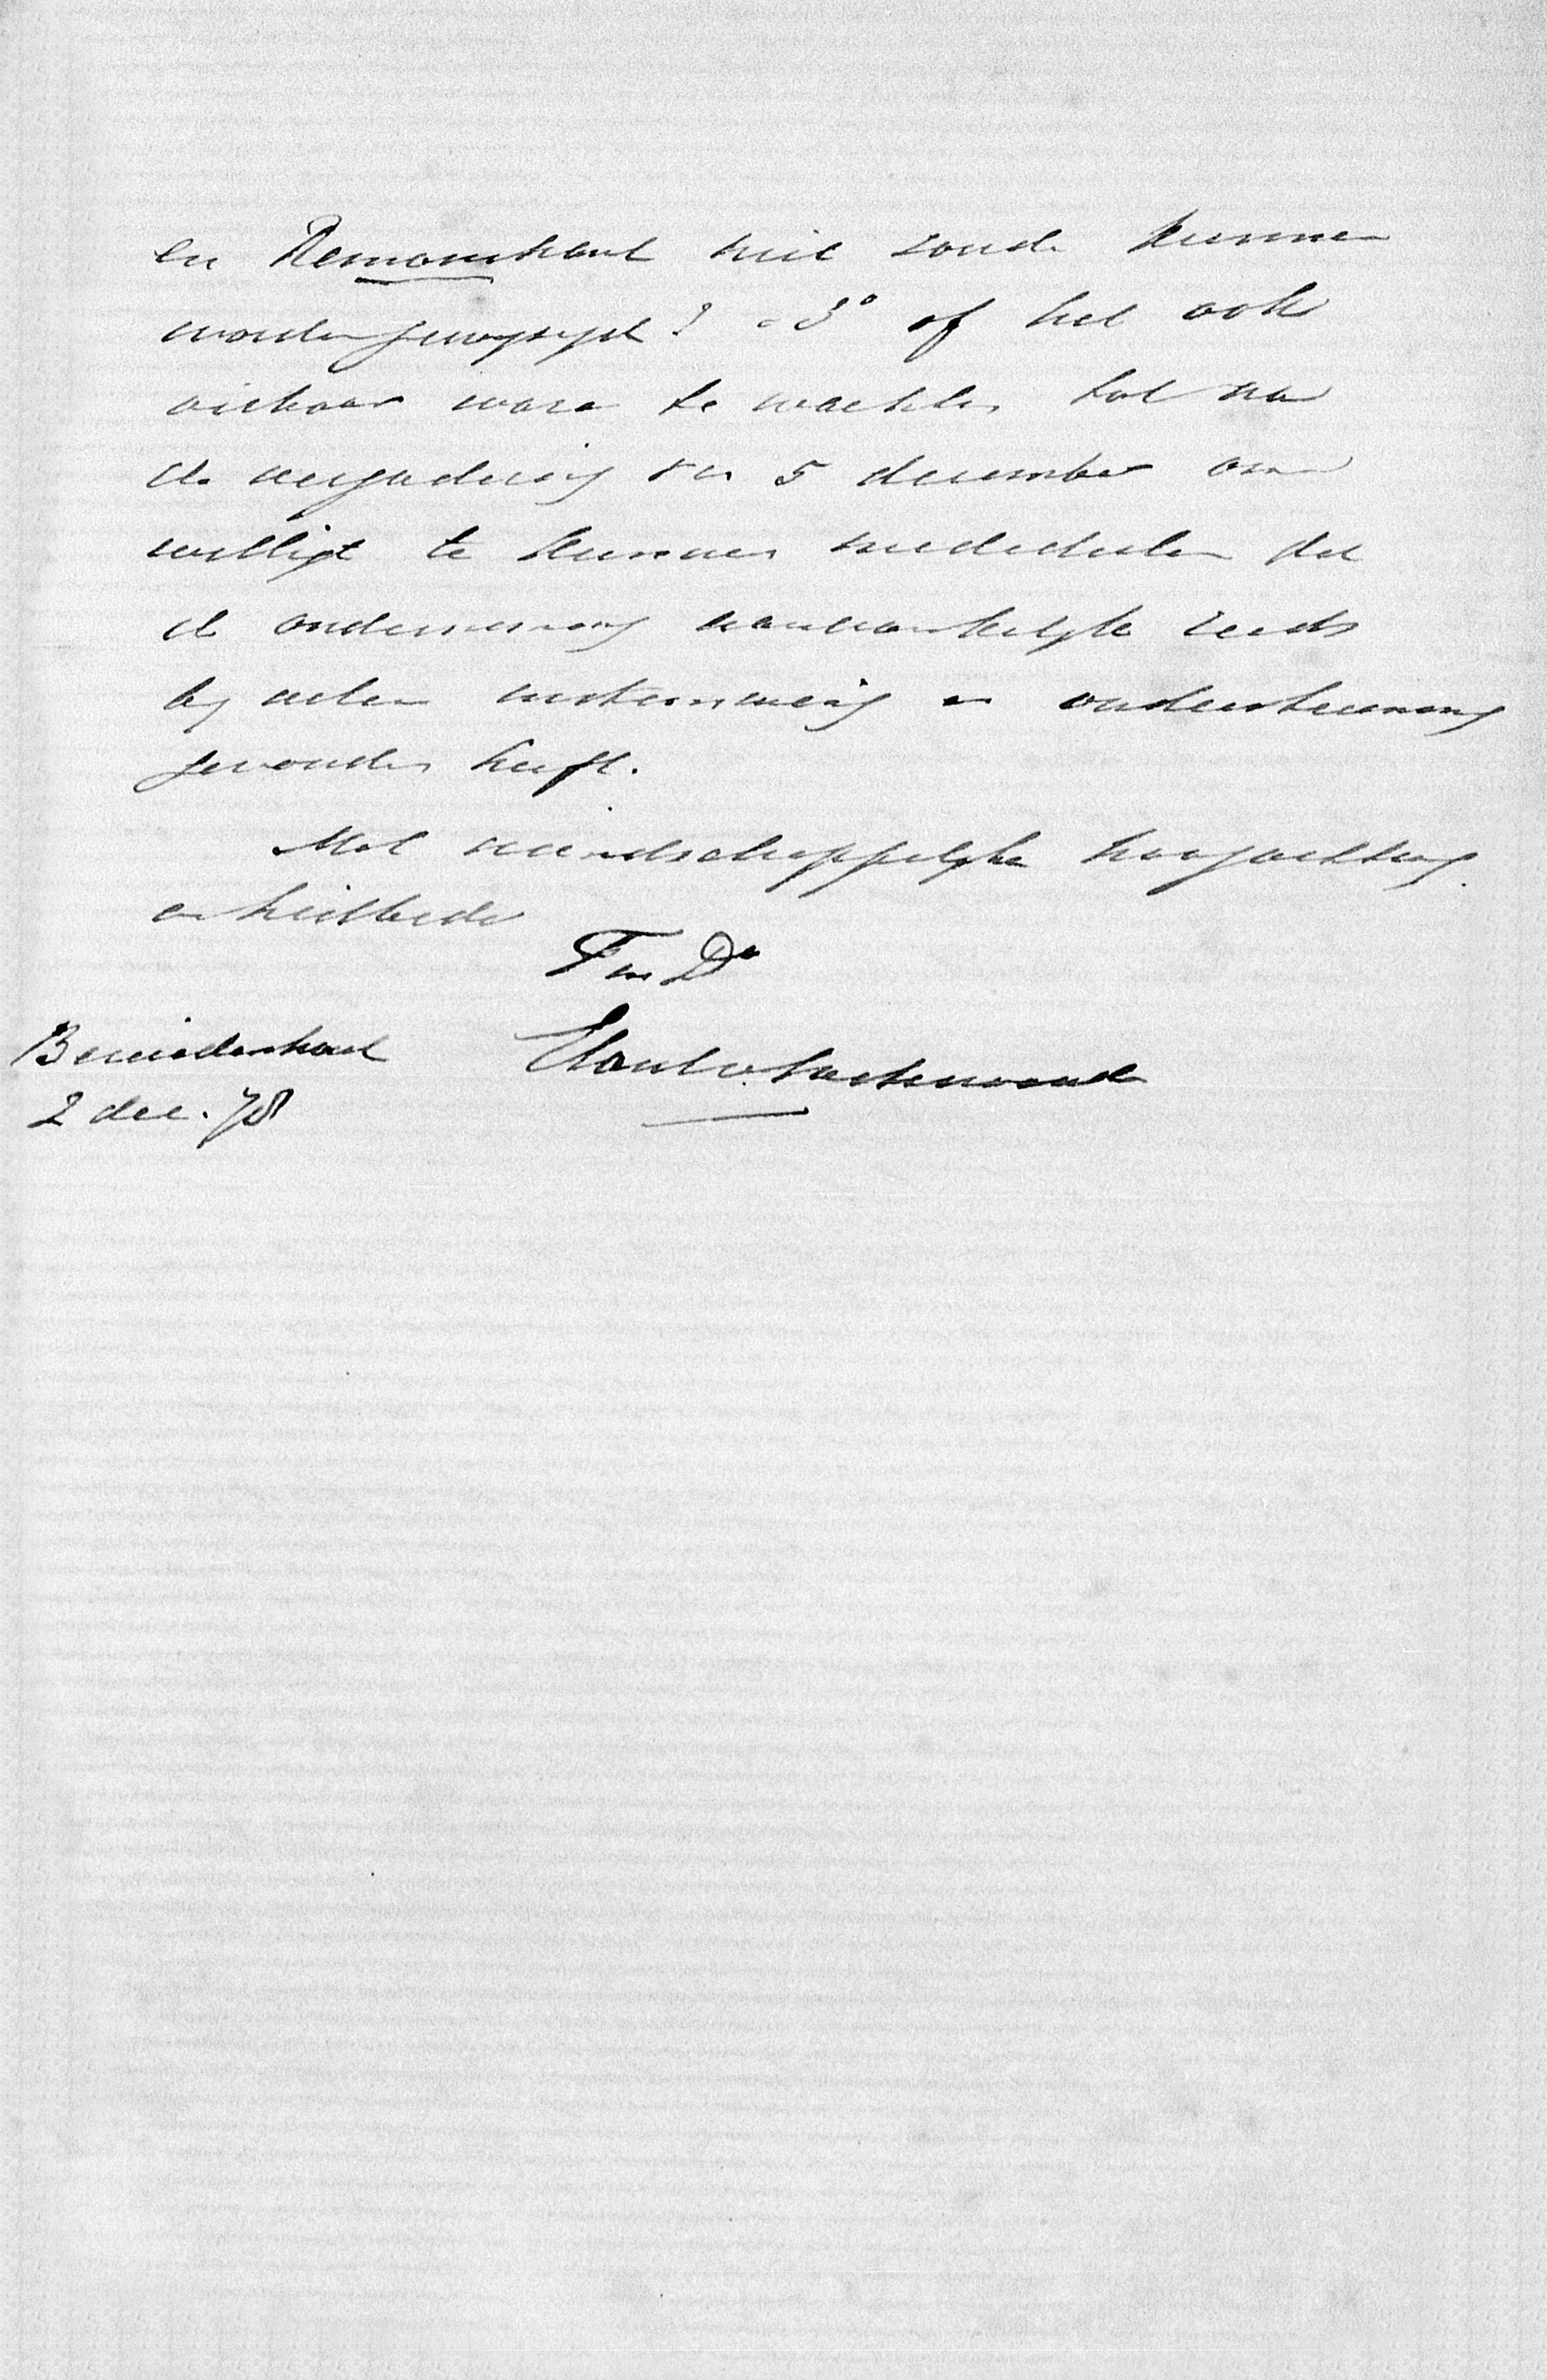 en Remonstrant niet zoude kunnen
worden gewijzigd? & 3° of het ook
oirbaar ware te wachten tot na
de vergadering van 5 december om
welligt te kunnen mededeelen dat
de onderneming aanvankelijk reeds
bij velen instemming en ondersteuning
gevonden heeft.
Met vriendschappelijke hoogachting
en heilbede
T en D
Elout v. Soeterwoude
Bezuidenhout
2 dec. 78